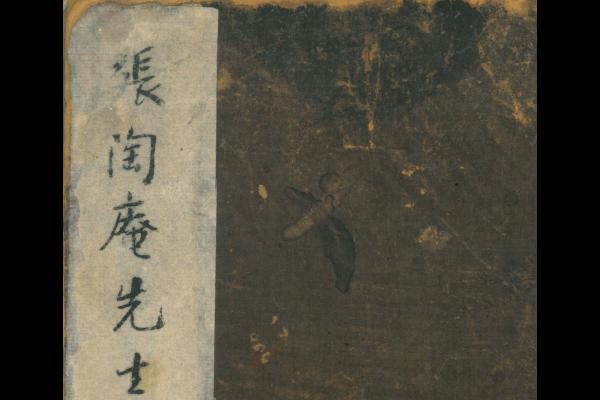 張陶庵先生